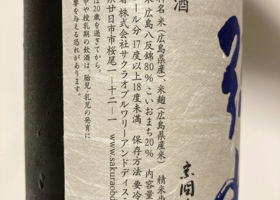 酒
料名 米(広島県産)、米麹(広島県産米) 精米歩
米 広島八反錦80% こいおまち20% 内容量
ール分 17度以上18度未満 保存方法 要冷
者 株式会社サクラオブルワリーアンドディス
県廿日市市桜尾一-十二-一 www.sakuraob
は20歳を過ぎてから。
や授乳期の飲酒は、胎児・乳児の発育に
響を与える恐れがあります。